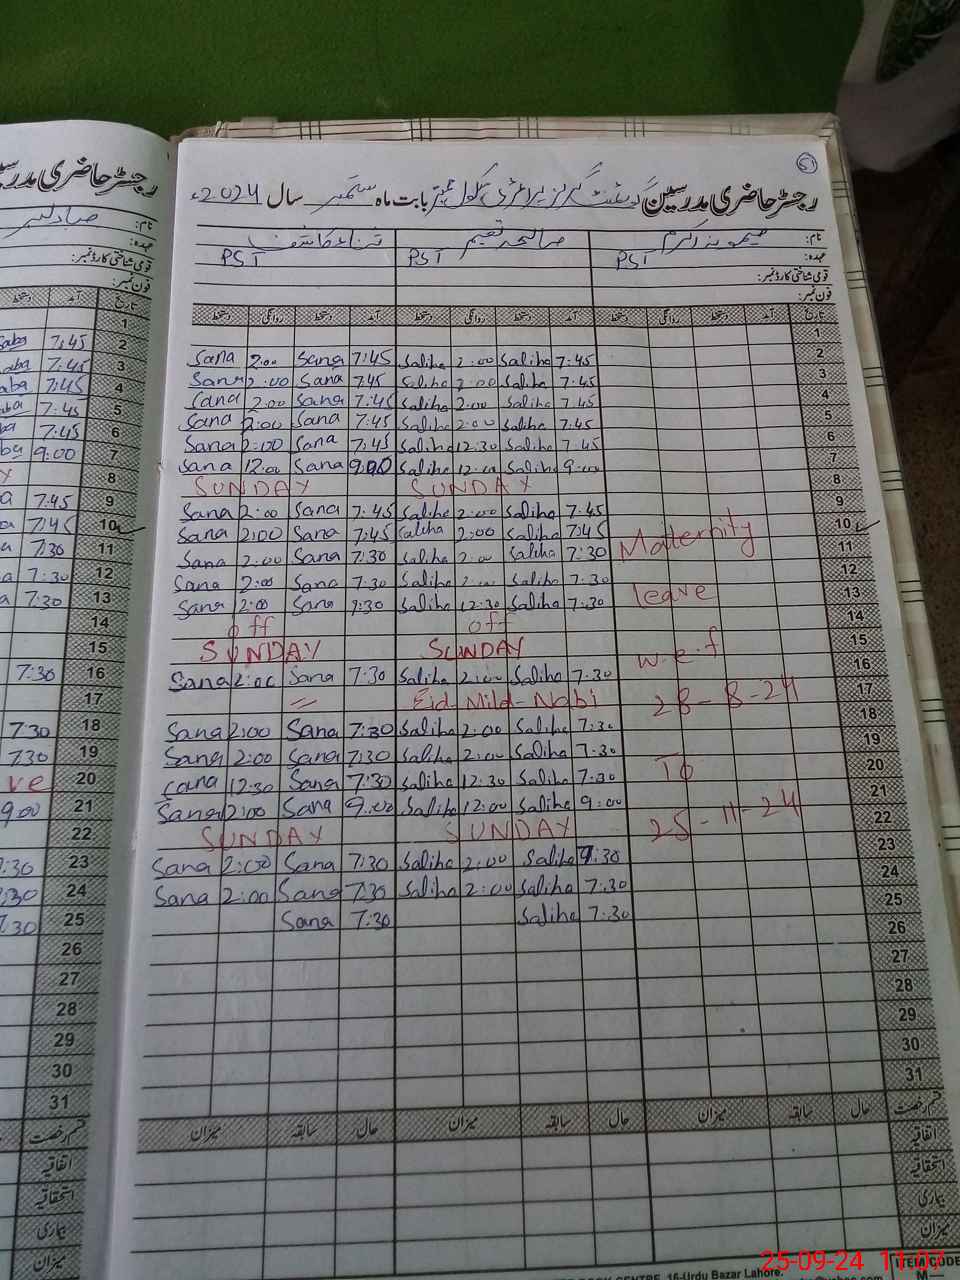 رجسٹر حاضری مدرسین گورنمنٹ گرلز پرائمری سکول بابت ماہ ستمبر سال 2024ء
نام: صالحہ نعیم ثناء کاشف
عہدہ: PST PST PST
قومی شناختی کارڈ نمبر:
فون نمبر:
تاریخ آمد دستخط روانگی دستخط آمد دستخط روانگی دستخط آمد دستخط روانگی دستخط
1
2 7:45 Saliha 2:00 Saliha 7:45 Sana 2:00 Sana
3 7:45 Saliha 2:00 Saliha 7:45 Sana 2:00 Sana
4 7:45 Saliha 2:00 Saliha 7:45 Sana 2:00 Sana
5 7:45 Saliha 2:00 Saliha 7:45 Sana 2:00 Sana
6 7:45 Saliha 12:30 Saliha 7:45 Sana 2:00 Sana
7 9:00 Saliha 12:00 Saliha 9:00 Sana 12:00 Sana
8 SUNDAY SUNDAY
9 7:45 Saliha 2:00 Saliha 7:45 Sana 2:00 Sana
10 7:45 Saliha 2:00 Saliha 7:45 Sana 2:00 Sana
11 Maternity 7:30 Saliha 2:00 Saliha 7:30 Sana 2:00 Sana
12 7:30 Saliha 2:00 Saliha 7:30 Sana 2:00 Sana
13 leave 7:30 Saliha 12:30 Saliha 7:30 Sana 2:00 Sana
14 off off
15 w.e.f SUNDAY SUNDAY
16 7:30 Saliha 2:00 Saliha 7:30 Sana 2:00 Sana
17 28-8-24 Eid-Mild-Nabi =
18 7:30 Saliha 2:00 Saliha 7:30 Sana 2:00 Sana
19 7:30 Saliha 2:00 Saliha 7:30 Sana 2:00 Sana
20 To 7:30 Saliha 12:30 Saliha 7:30 Sana 12:30 Sana
21 9:00 Saliha 12:00 Saliha 9:00 Sana 2:00 Sana
22 25-11-24 SUNDAY SUNDAY
23 7:30 Saliha 2:00 Saliha 7:30 Sana 2:00 Sana
24 7:30 Saliha 2:00 Saliha 7:30 Sana 2:00 Sana
25 7:30 Saliha 7:30 Sana
26
27
28
29
30
31
قسم رخصت حال سابقہ میزان حال سابقہ میزان حال سابقہ میزان
اتفاقیہ
استحقاقیہ
بیماری
میزان
16-Urdu Bazar Lahore.
ITEM CODE
رجسٹر حاضری
نام:
عہدہ:
قومی شناختی کارڈ نمبر:
فون نمبر:
تاریخ آمد دستخط
1
2 7:45
3 7:45
4 7:45
5 7:45
6 7:45
7 9:00
8
9 7:45
10 7:45
11 7:30
12 7:30
13 7:30
14
15
16 7:30
17
18 7:30
19 7:30
20
21 9:00
22
23
24
25
26
27
28
29
30
31
قسم رخصت حال
اتفاقیہ
استحقاقیہ
بیماری
میزان
25-09-24 11:07